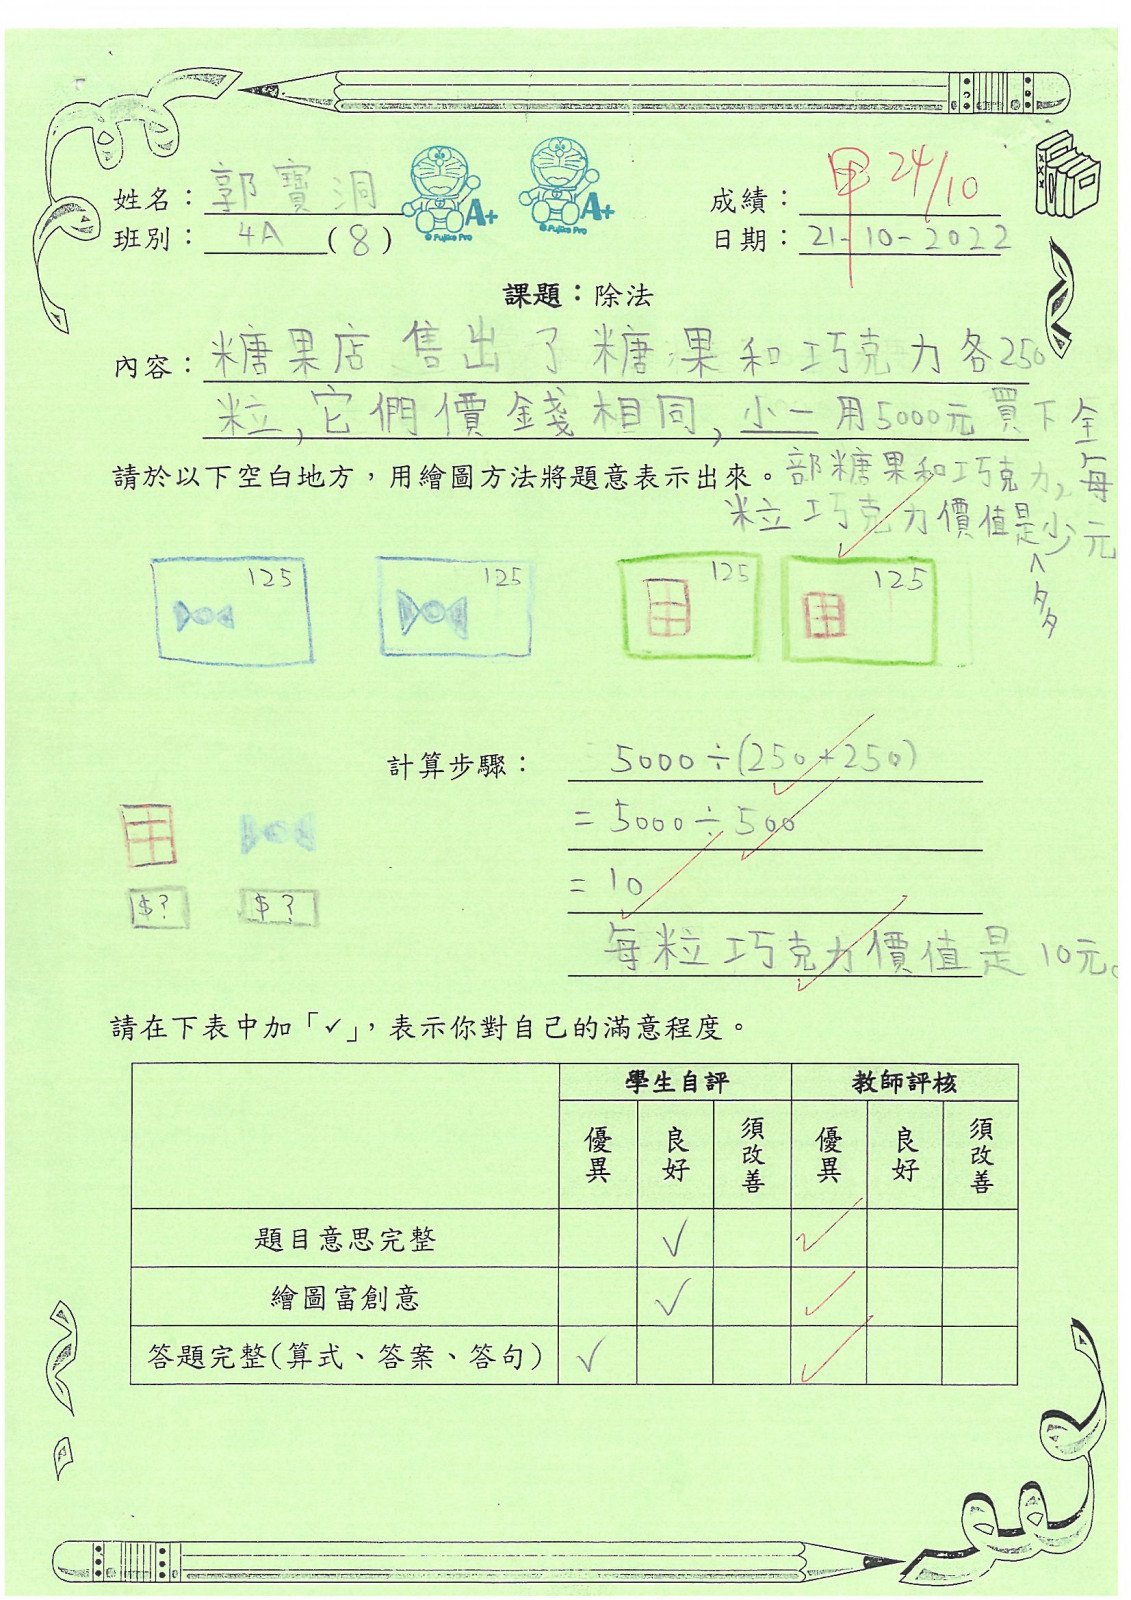 姓名：郭寶洞
A+
© Fujiko Pro
A+
© Fujiko Pro
成績：甲 24/10
班別：4A(8)
日期：21-10-2022
課題：除法
內容：糖果店售出了糖果和巧克力各250
粒,它們價錢相同,小一用5000元買下全
請於以下空白地方，用繪圖方法將題意表示出來。部糖果和巧克力,每
粒巧克力價值是多少元
125 125 125 125
計算步驟： 5000÷(250+250)
= 5000÷500
= 10
$? $?
每粒巧克力價值是10元。
請在下表中加「✓」，表示你對自己的滿意程度。
學生自評 教師評核
優異 良好 須改善 優異 良好 須改善
題目意思完整 ✓ ✓
繪圖富創意 ✓ ✓
答題完整(算式、答案、答句) ✓ ✓